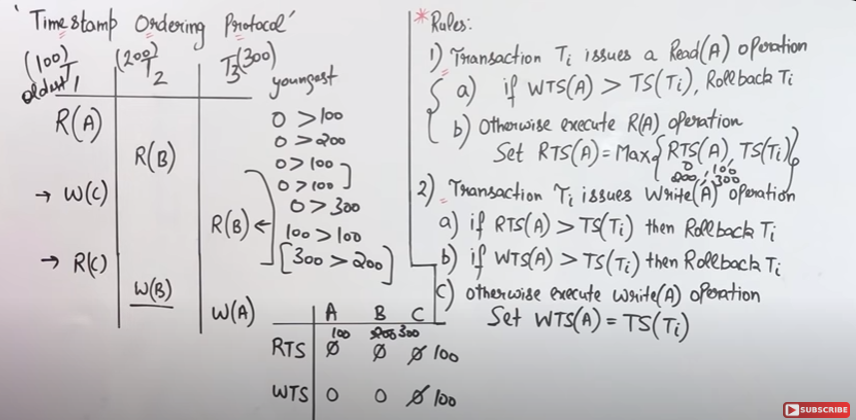 'Timestamp Ordering Protocol'
(100) (200) (300)
oldest T1 T2 T3 youngest
R(A)
R(B)
→ W(C)
R(B) ←
→ R(C)
W(B)
W(A)
0 > 100
0 > 200
0 > 100
0 > 100
0 > 300
100 > 100
[300 > 200]
A B C
100 200 300
RTS 0 0 0 100
WTS 0 0 0 100
*Rules:
1) Transaction Ti issues a Read(A) operation
a) if WTS(A) > TS(Ti), Rollback Ti
b) Otherwise execute R(A) operation
Set RTS(A) = Max{RTS(A), TS(Ti)}
0, 100
200, 300
2) Transaction Ti issues Write(A) operation
a) if RTS(A) > TS(Ti) then Rollback Ti
b) if WTS(A) > TS(Ti) then Rollback Ti
c) otherwise execute Write(A) operation
Set WTS(A) = TS(Ti)
SUBSCRIBE